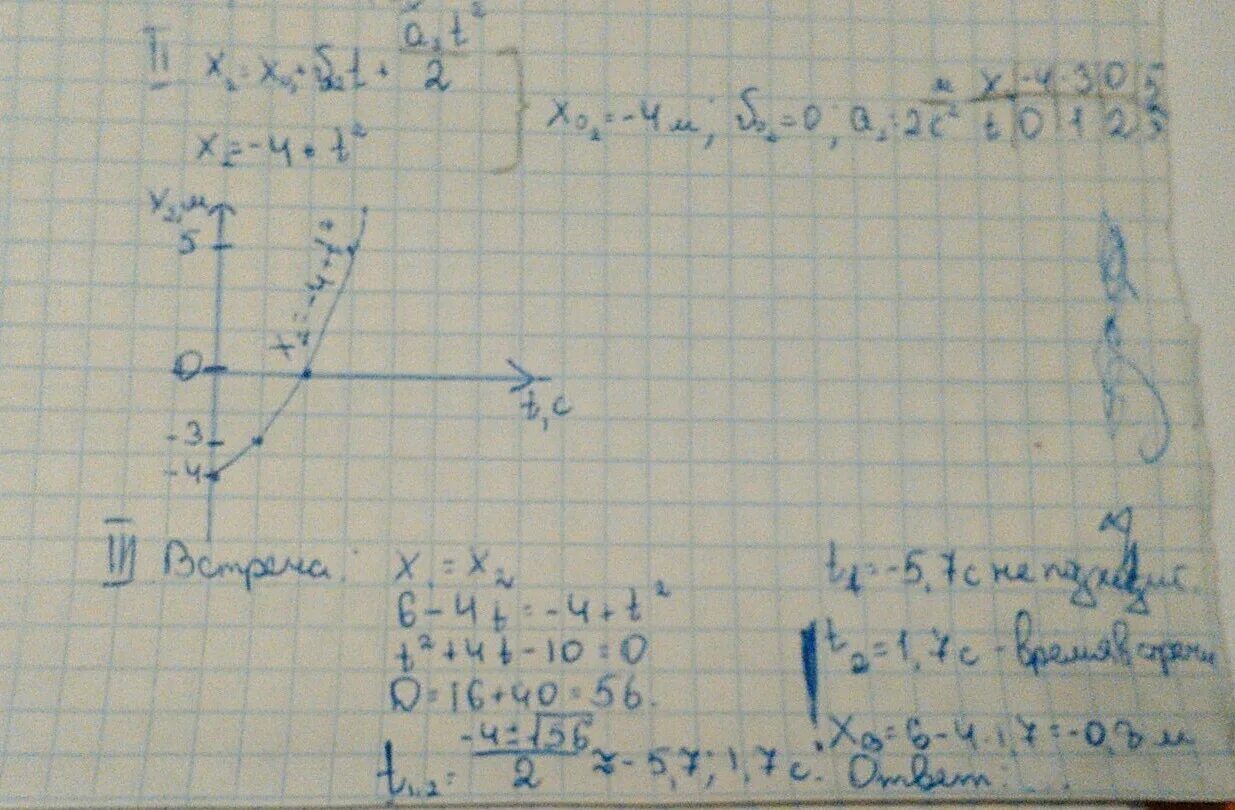 II x₂ = x₀₂ + υ₀₂t + a₂t²/2
x₂ = -4 + t²
x₀₂ = -4 м; υ₀₂ = 0; a₂ = 2 м/с²
x -4 -3 0 5
t 0 1 2 3
x₂, м
5
x₂ = -4 + t²
0
t, с
-3
-4
III Встреча:
x₁ = x₂
6 - 4t = -4 + t²
t² + 4t - 10 = 0
D = 16 + 40 = 56.
t₁,₂ = (-4 ± √56)/2 ≈ -5,7; 1,7 с.
t₁ = -5,7 с не
t₂ = 1,7 с - время встречи
xв = 6 - 4·1,7 = -0,8 м
Ответ: